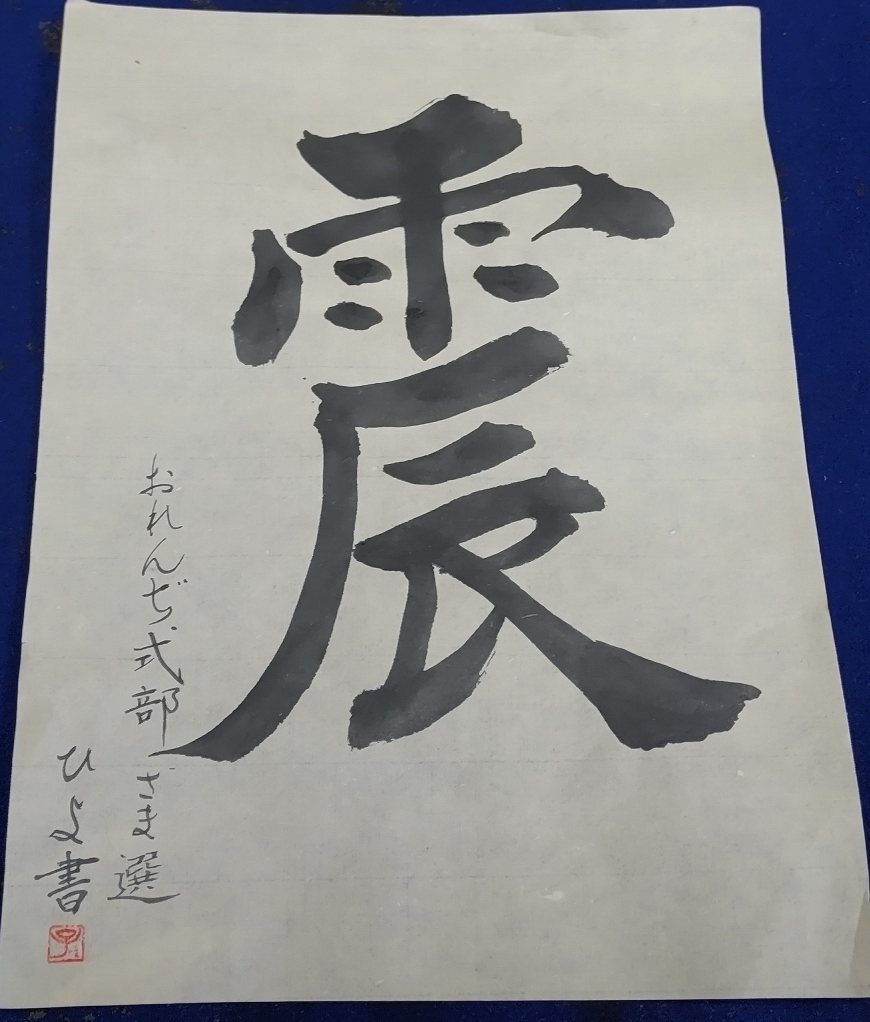 震
おれんぢ式部さま選
ひとみ書